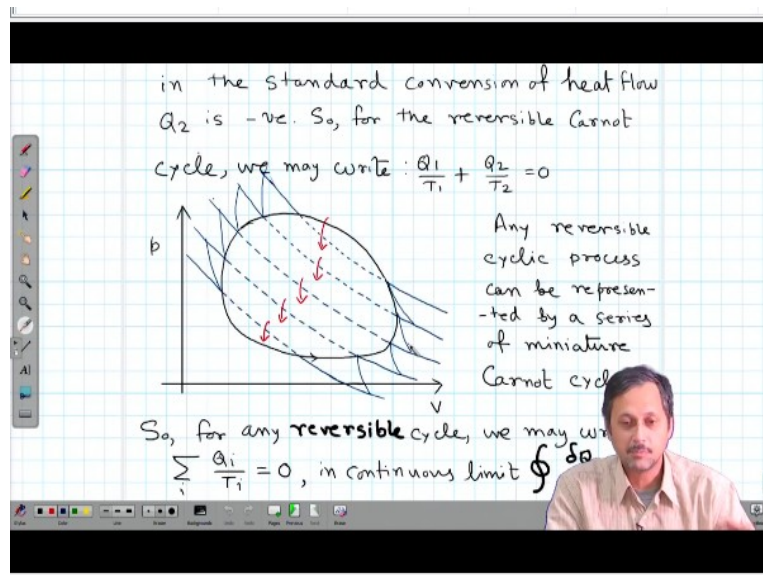 in the standard convension of heat flow
Q₂ is -ve. So, for the reversible Carnot
cycle, we may write : Q₁/T₁ + Q₂/T₂ = 0
p
V
Any reversible
cyclic process
can be represen-
-ted by a series
of miniature
Carnot
So, for any reversible cycle, we may
∑ᵢ Qᵢ/Tᵢ = 0, in continuous limit ∮ δQ